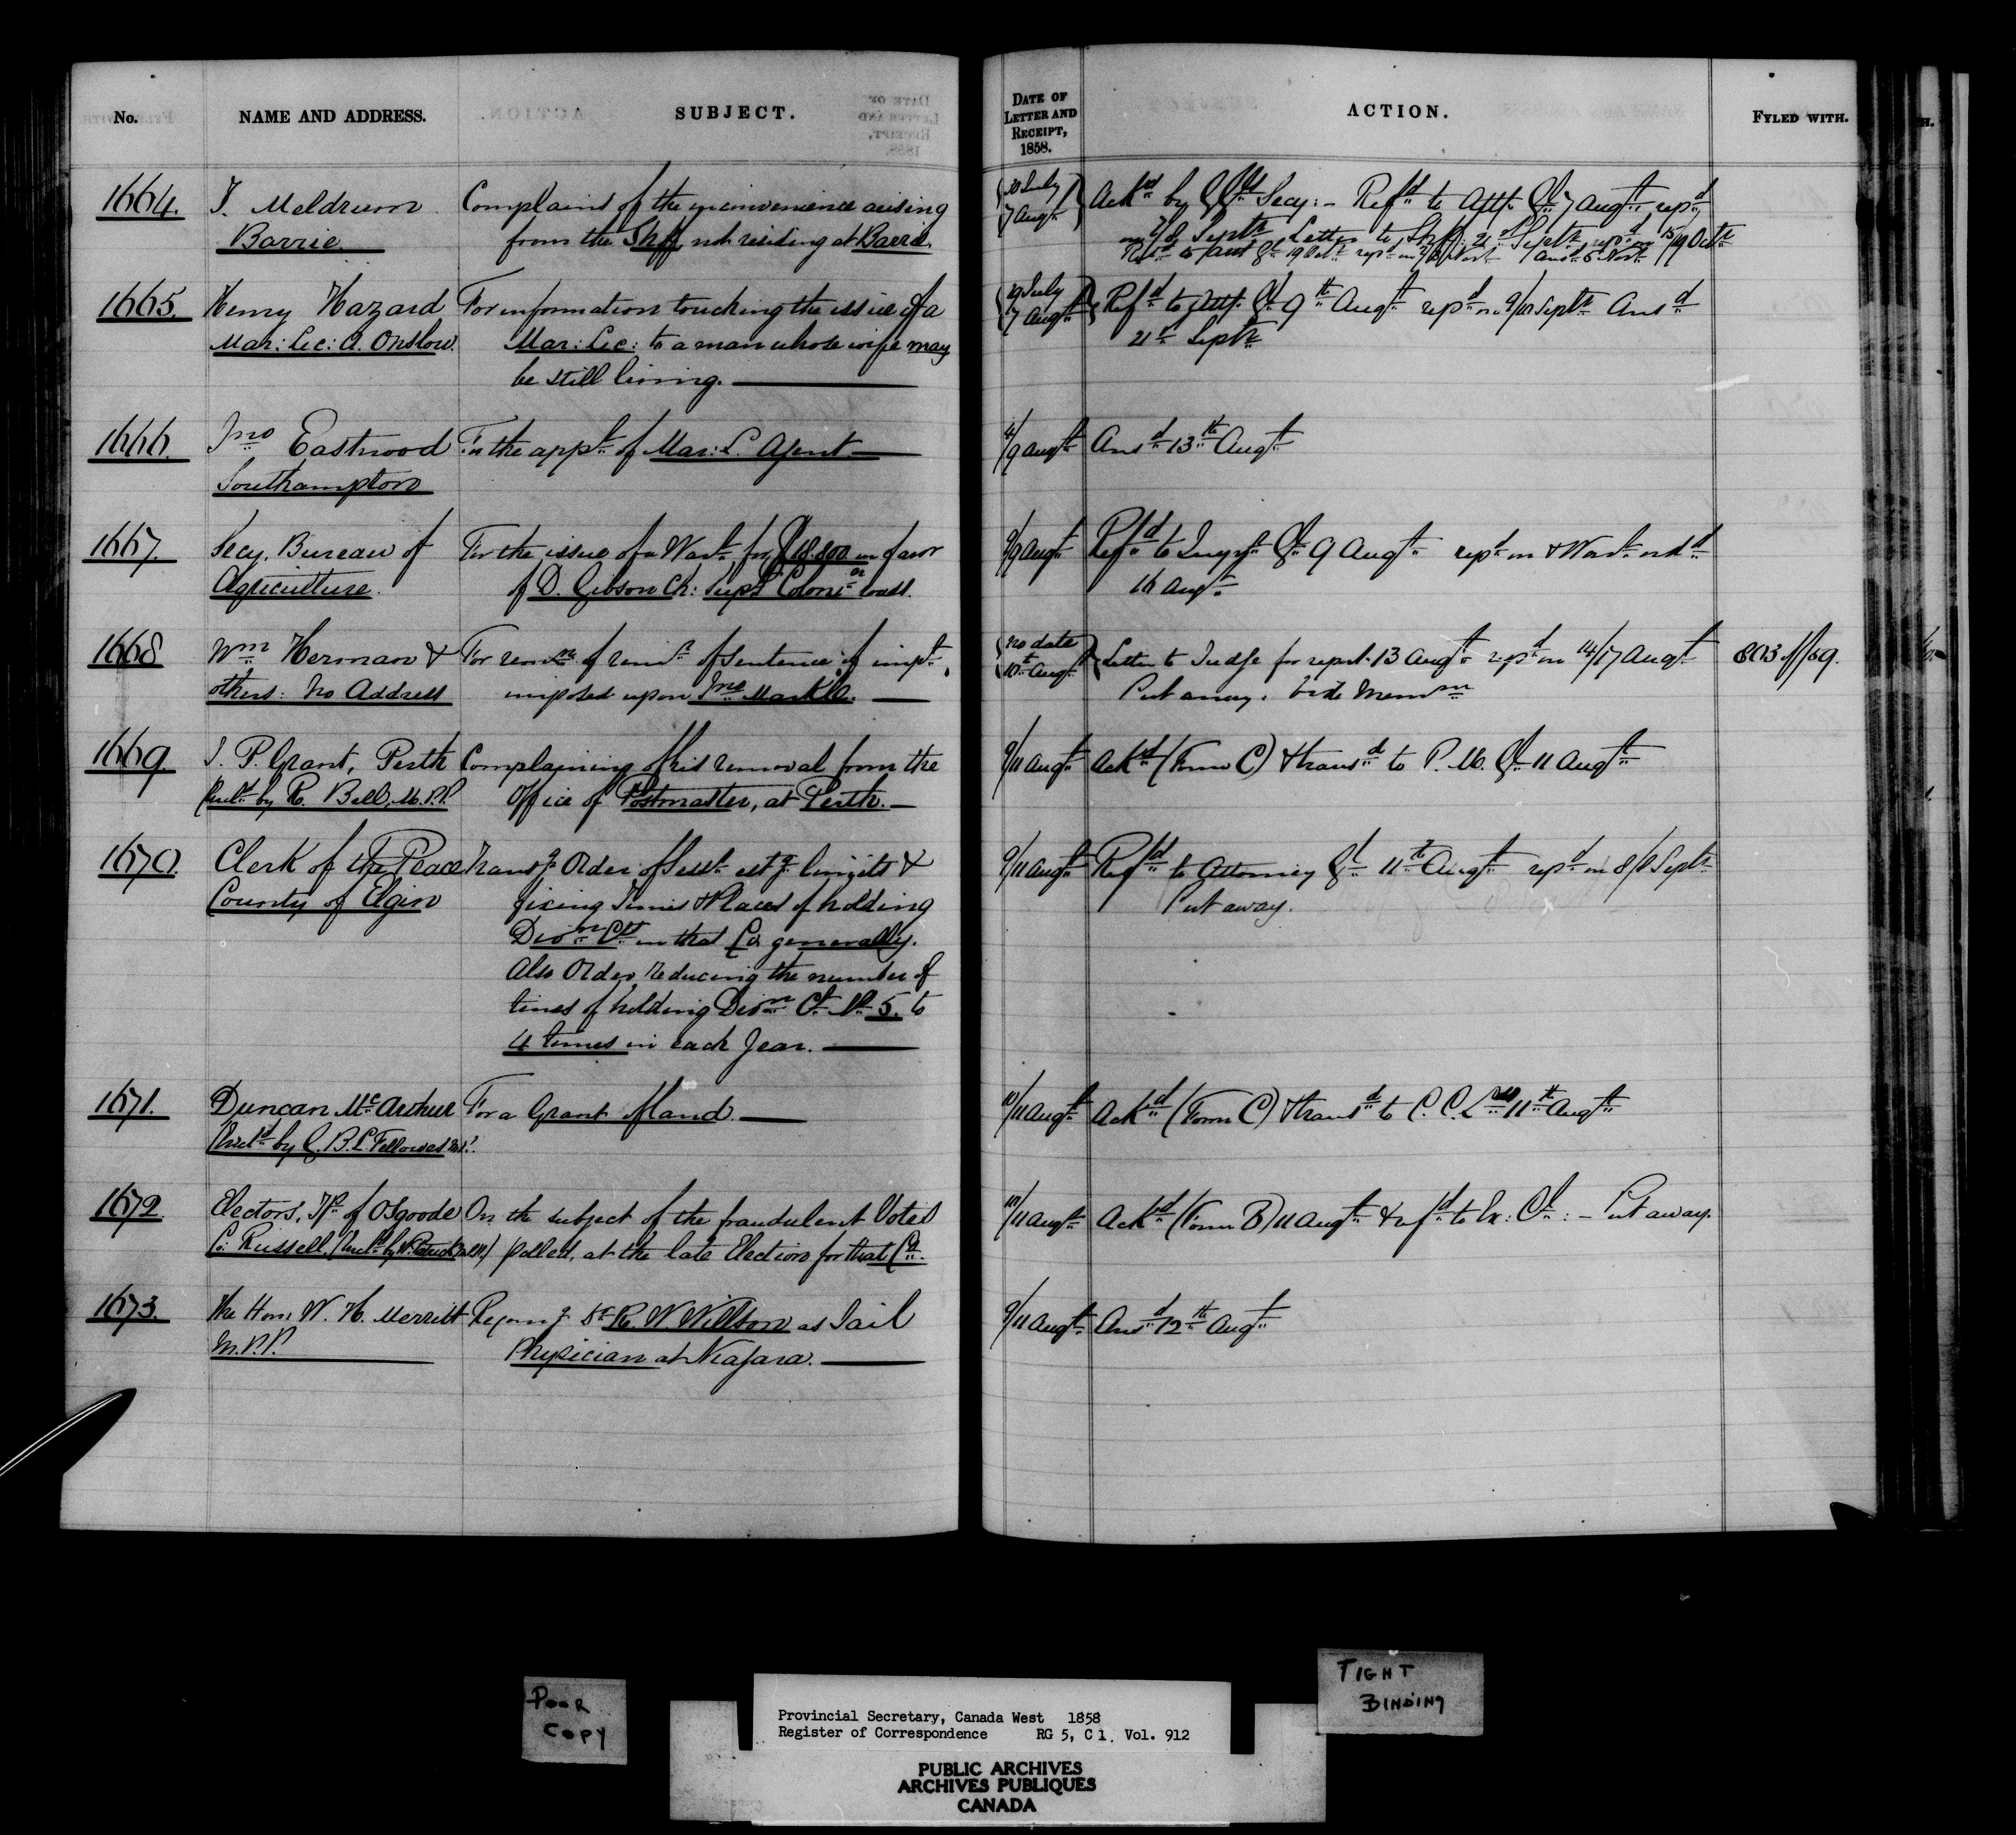 No. NAME AND ADDRESS. SUBJECT. DATE OF LETTER AND RECEIPT, 1858. ACTION. FYLED WITH.
1664. T. Meldrum Complains of the inconvenience arising 30 July Ackd by G Gl Secy: - Refd to Atty Gl 7 Augt, repd
Barrie from the Shff not residing at Barrie. 7 Augt on Septr Letter to Shff: 21st Septr repd on 15/19 Octr
Refd to Gl 19 Octr repd on Novr Ansd 6 Novr
1665. Henry Hazard For information touching the issue of a 29 July Refd to Atty Gl 9th Augt repd on 9/10 Septr Ansd
Mar: Lic: A. Onslow. Mar: Lic: to a man whose wife may 7 Augt 21st Septr
be still living.
1666. Jno Eastwood For the appt of Mar: L. Agent 4/9 Augt Ansd 13th Augt
Southampton
1667. Secy. Bureau of For the issue of a Wart for $18.800 in favor 9/9 Augt Refd to Inspr Gl 9 Augt repd on & Wart
Agriculture. of D. Gibson Ch: Supt Colonin roads. 16 Augt
1668 Wm Herman & For of remr of sentence of impt No date Letter to Judge for report 13 Augt repd on 14/17 Augt 803 of/59.
others: No Address imposed upon Jno Markle. 10th Augt Put away. Vide Memm
1669. J. P. Grant, Perth Complaining of his removal from the 9/11 Augt Ackd (Form C) & transd to P. M. Gl 11 Augt
Encld by R. Bell, M.P.P. Office of Postmaster, at Perth.
1670. Clerk of the Peace Transg Order of Sess estg limits & 9/11 Augt Refd to Attorney Gl 11th Augt repd on 8/8 Septr
County of Elgin fixing Times & Places of holding Put away.
Divn Cts in that Co. generally.
Also Order reducing the number of
times of holding Divn Ct No 5. to
4 times in each Year.
1671. Duncan McArthur For a Grant of land. 10/11 Augt Ackd (Form C) & transd to C. C. Lds 11th Augt
Encld by G. B. L. Fellowes
1672. Electors, Tp of Osgoode On the subject of the fraudulent Votes 10/11 Augt Ackd (Form B) 11 Augt & refd to Ex: Cl: - Put away.
Co: Russell, (Encld by W. Patrick M.P.P.) polled, at the late Election for that Co.
1673. The Hon: W. H. Merritt Recomg Dr R. W. Willson as Jail 9/11 Augt Ansd 12th Augt
M.P.P. Physician at Niagara.
POOR COPY
TIGHT BINDING
Provincial Secretary, Canada West 1858
Register of Correspondence RG 5, C 1. Vol. 912
PUBLIC ARCHIVES
ARCHIVES PUBLIQUES
CANADA